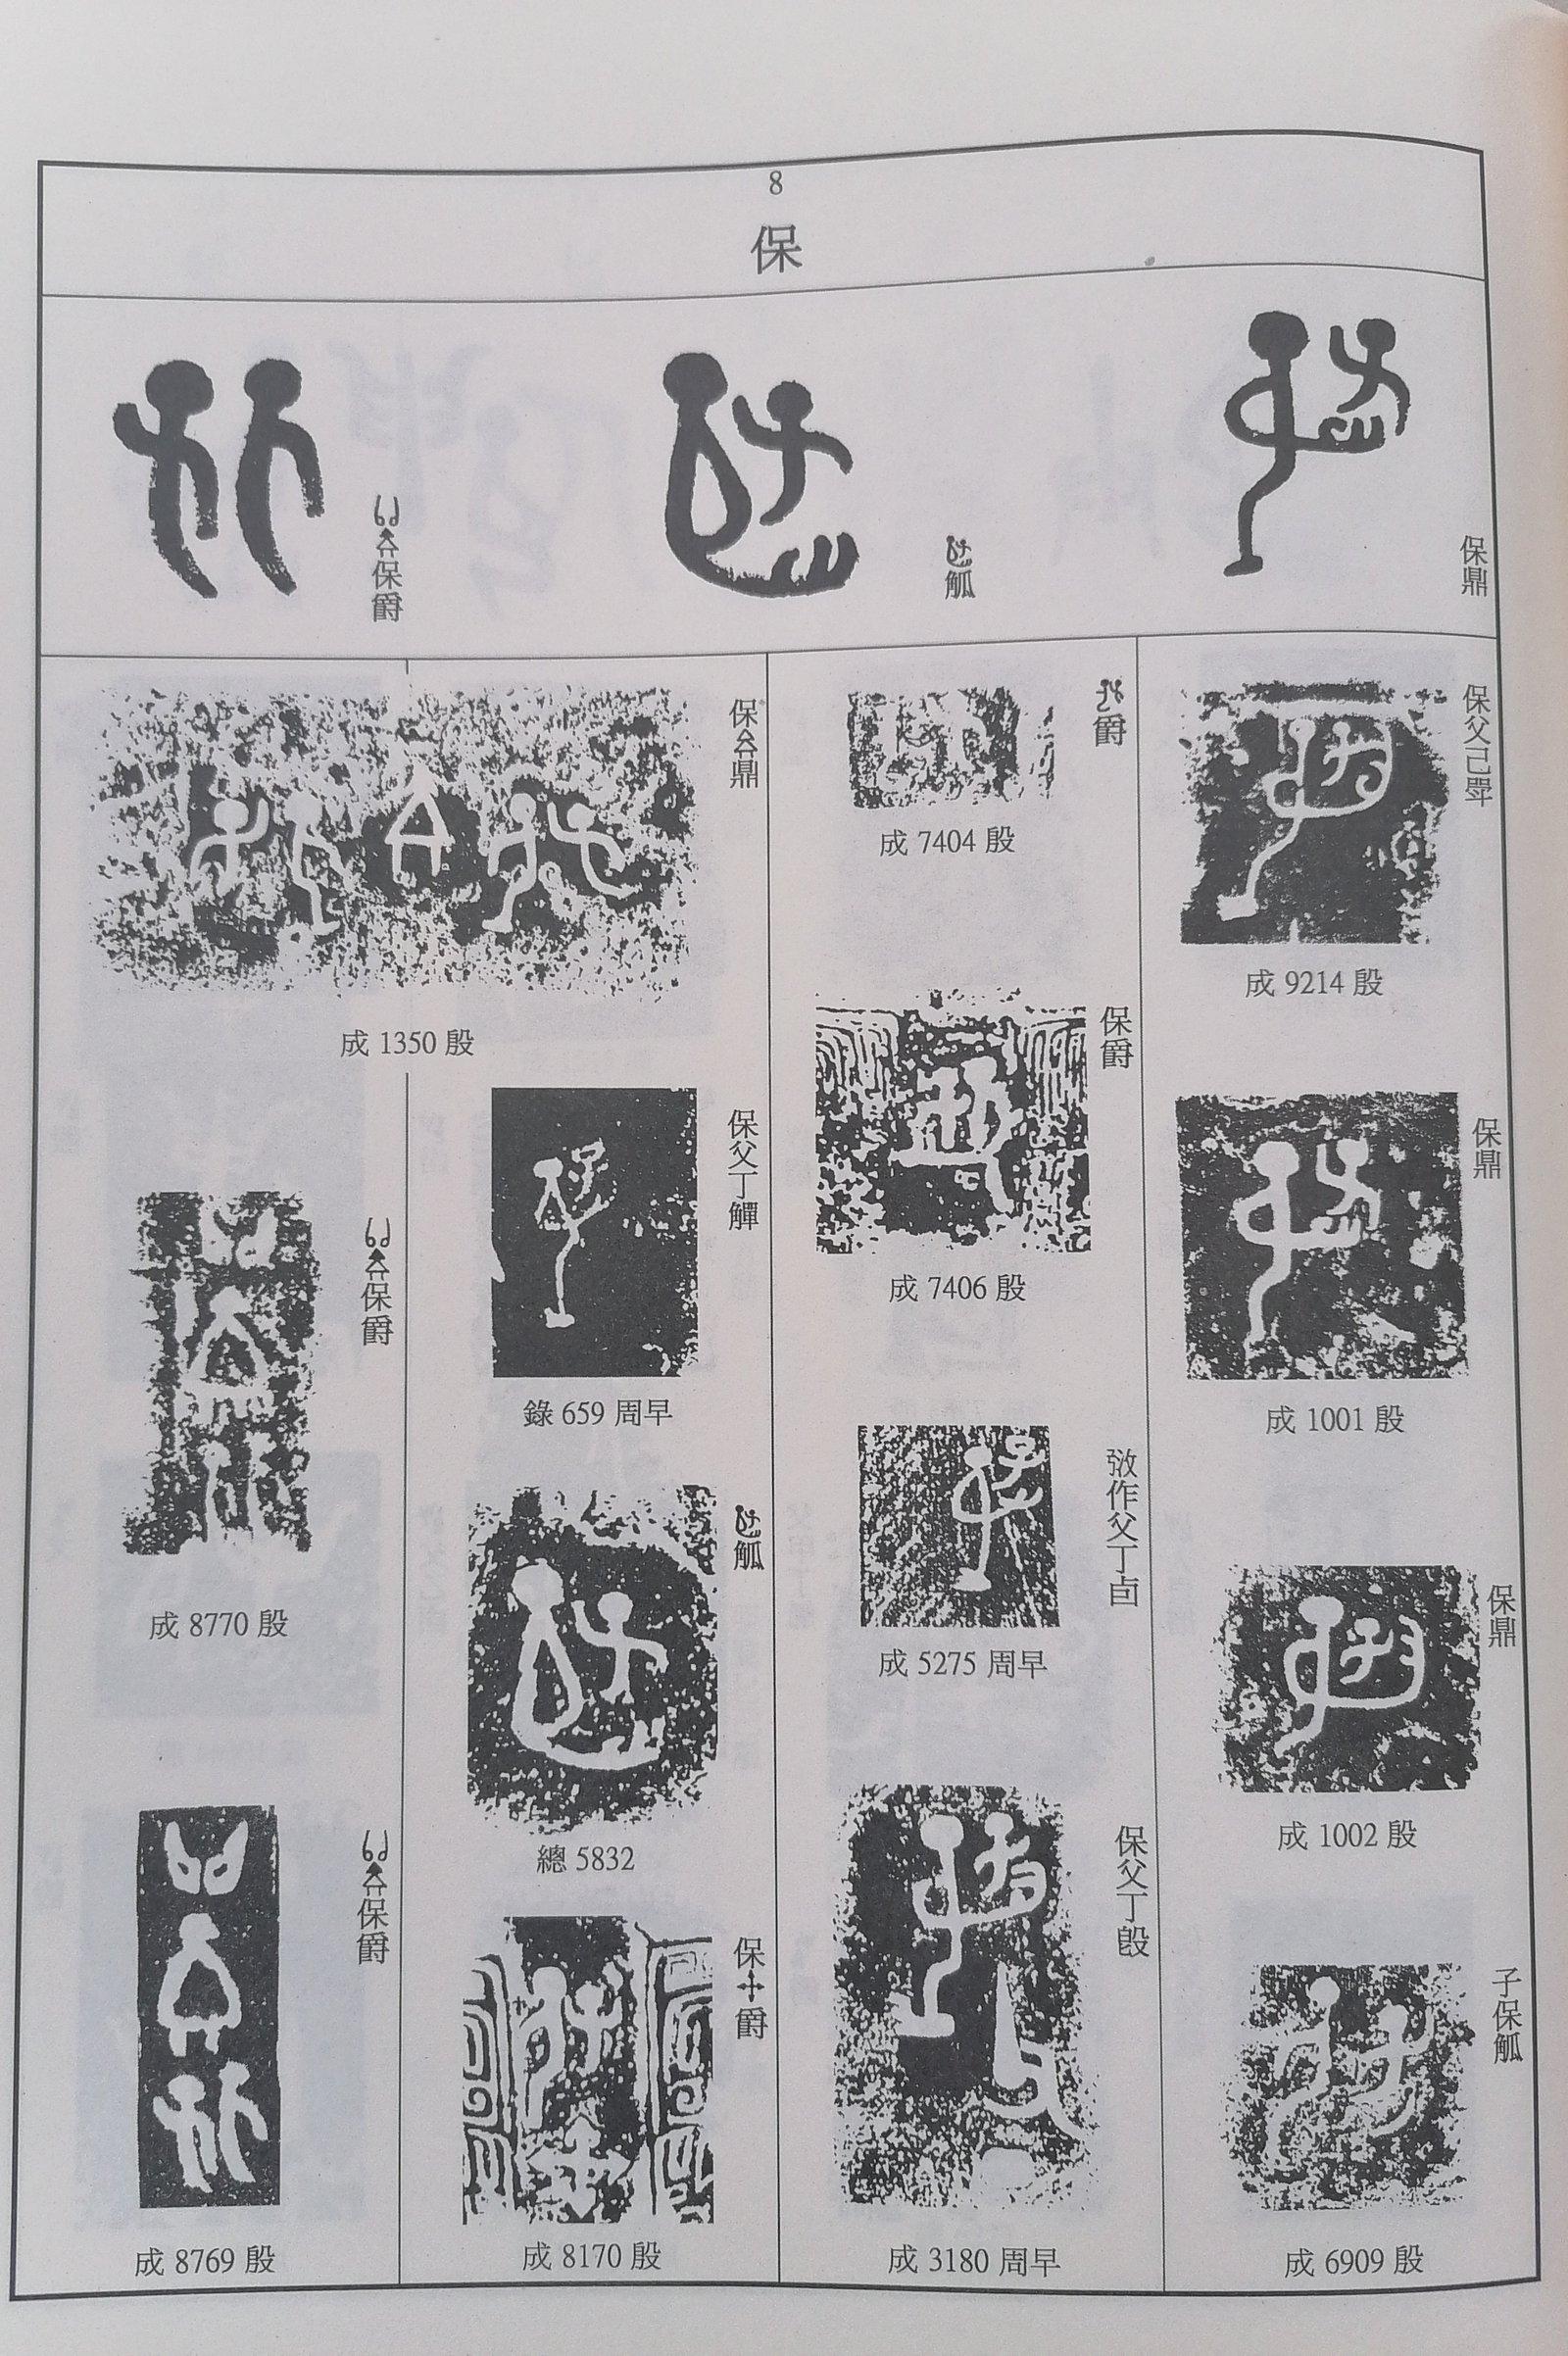 8
保
保鼎
觚
保爵
保父己斝
成 9214 殷
保鼎
成 1001 殷
保鼎
成 1002 殷
子保觚
成 6909 殷
爵
成 7404 殷
保爵
成 7406 殷
作父丁卣
成 5275 周早
保父丁𣪘
成 3180 周早
保鼎
成 1350 殷
保父丁觶
錄 659 周早
觚
總 5832
保爵
成 8170 殷
保爵
成 8770 殷
保爵
成 8769 殷